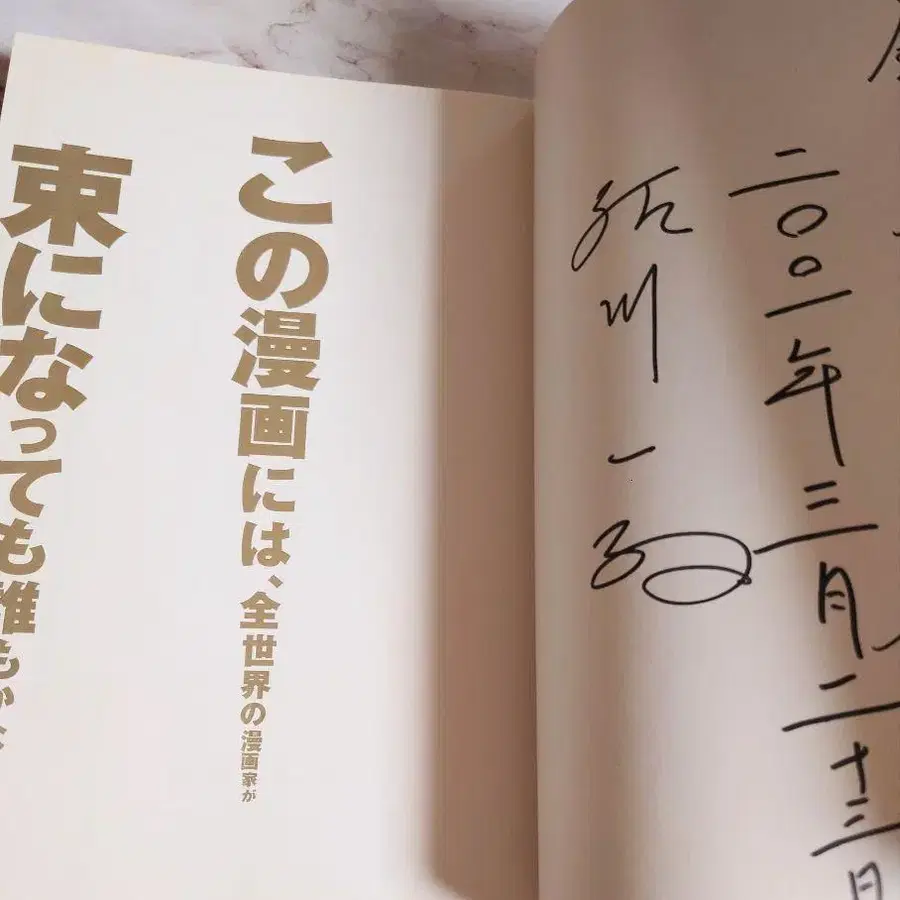 二〇〇一年三月二十三日
川一
この漫画には、全世界の漫画家が
束になっても誰もかな